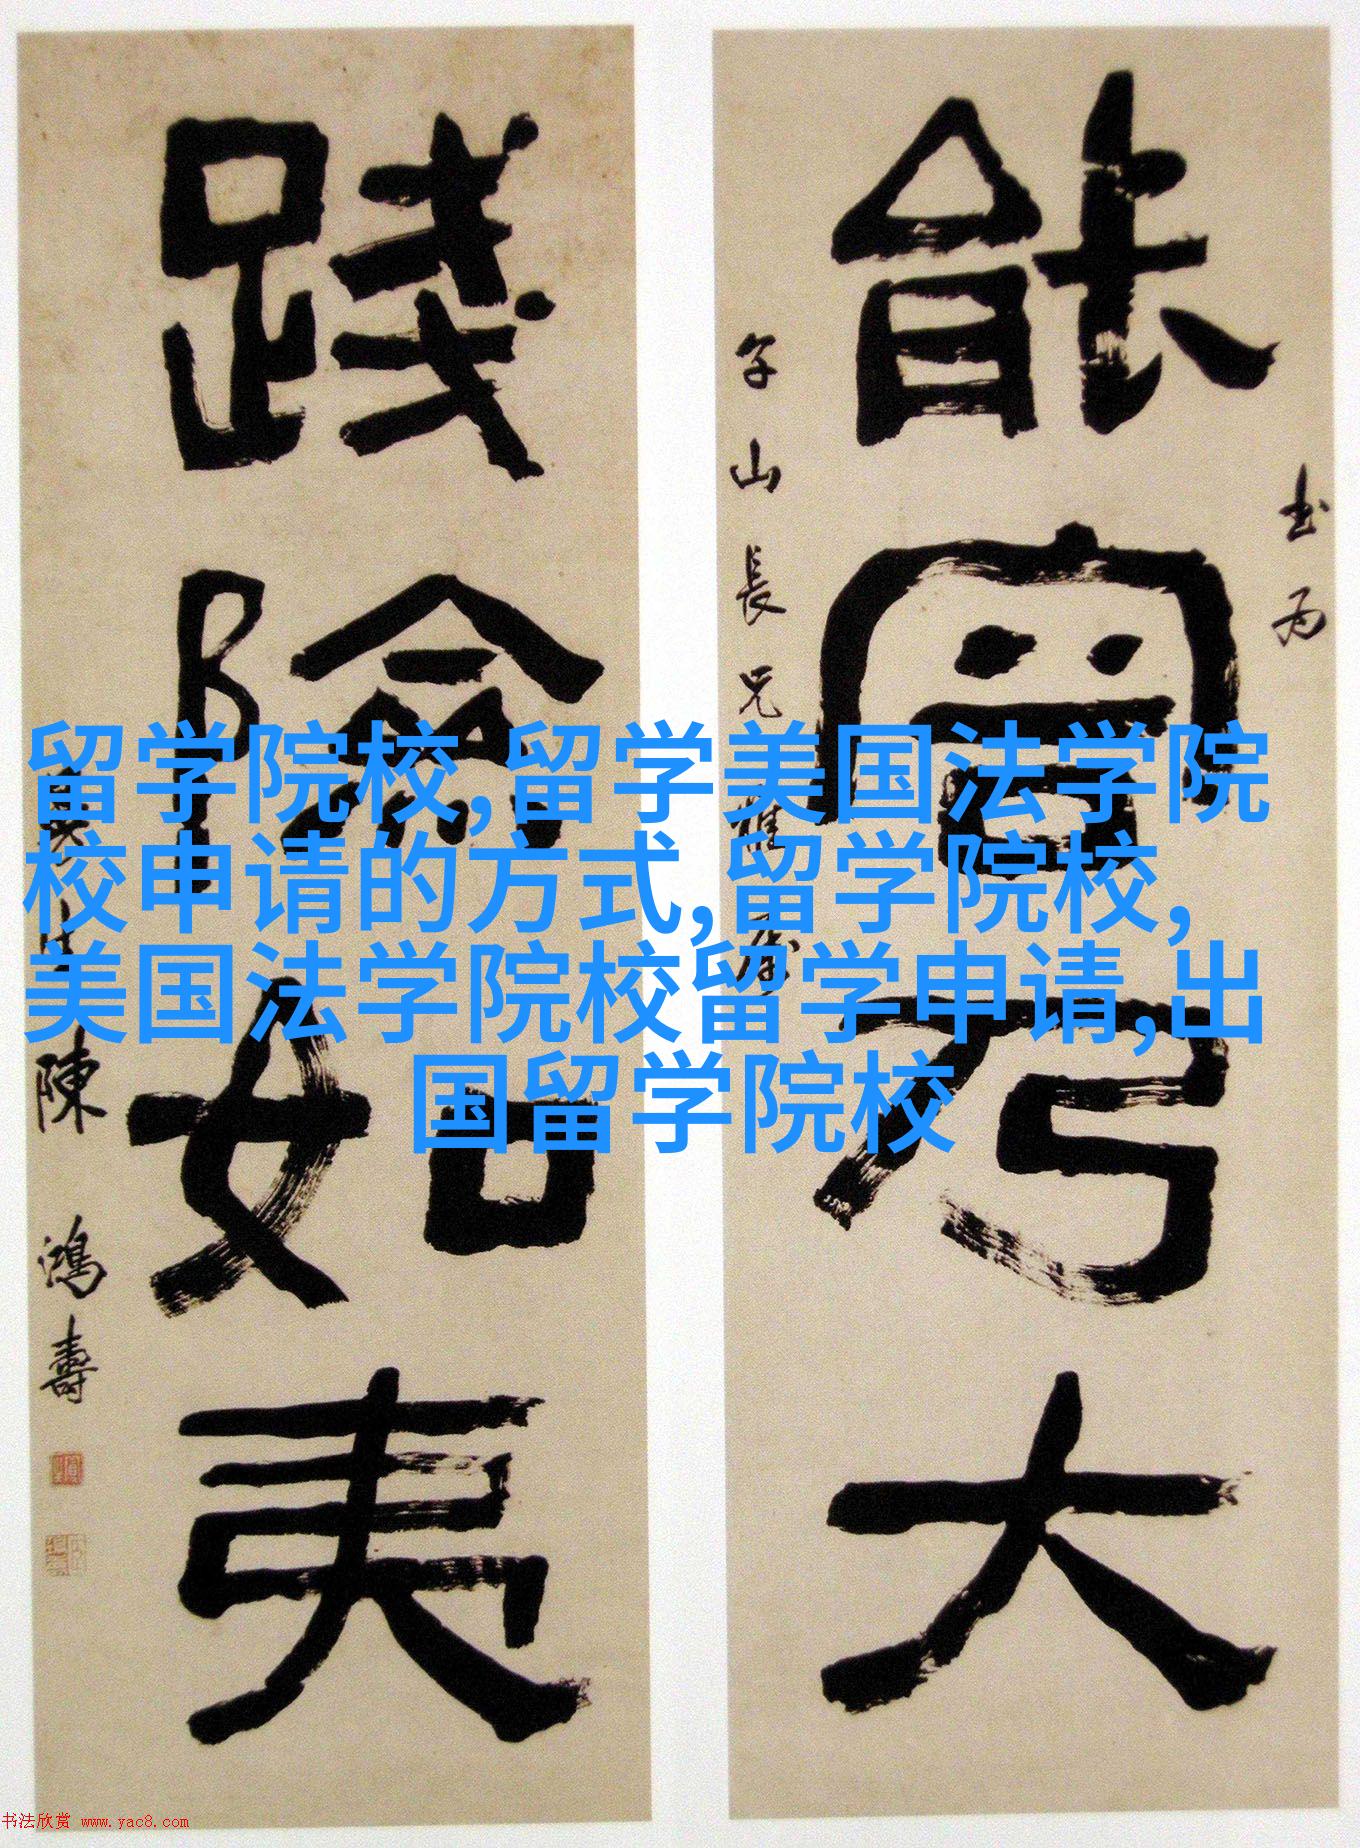 留学院校,留学美国法学院
校申请的方式,留学院校,
美国法学院校留学申请,出
国留学院校
能乃大
書為
山長兄雅屬
踐險如夷
生陳鴻壽
书法欣赏 www.yac8.com